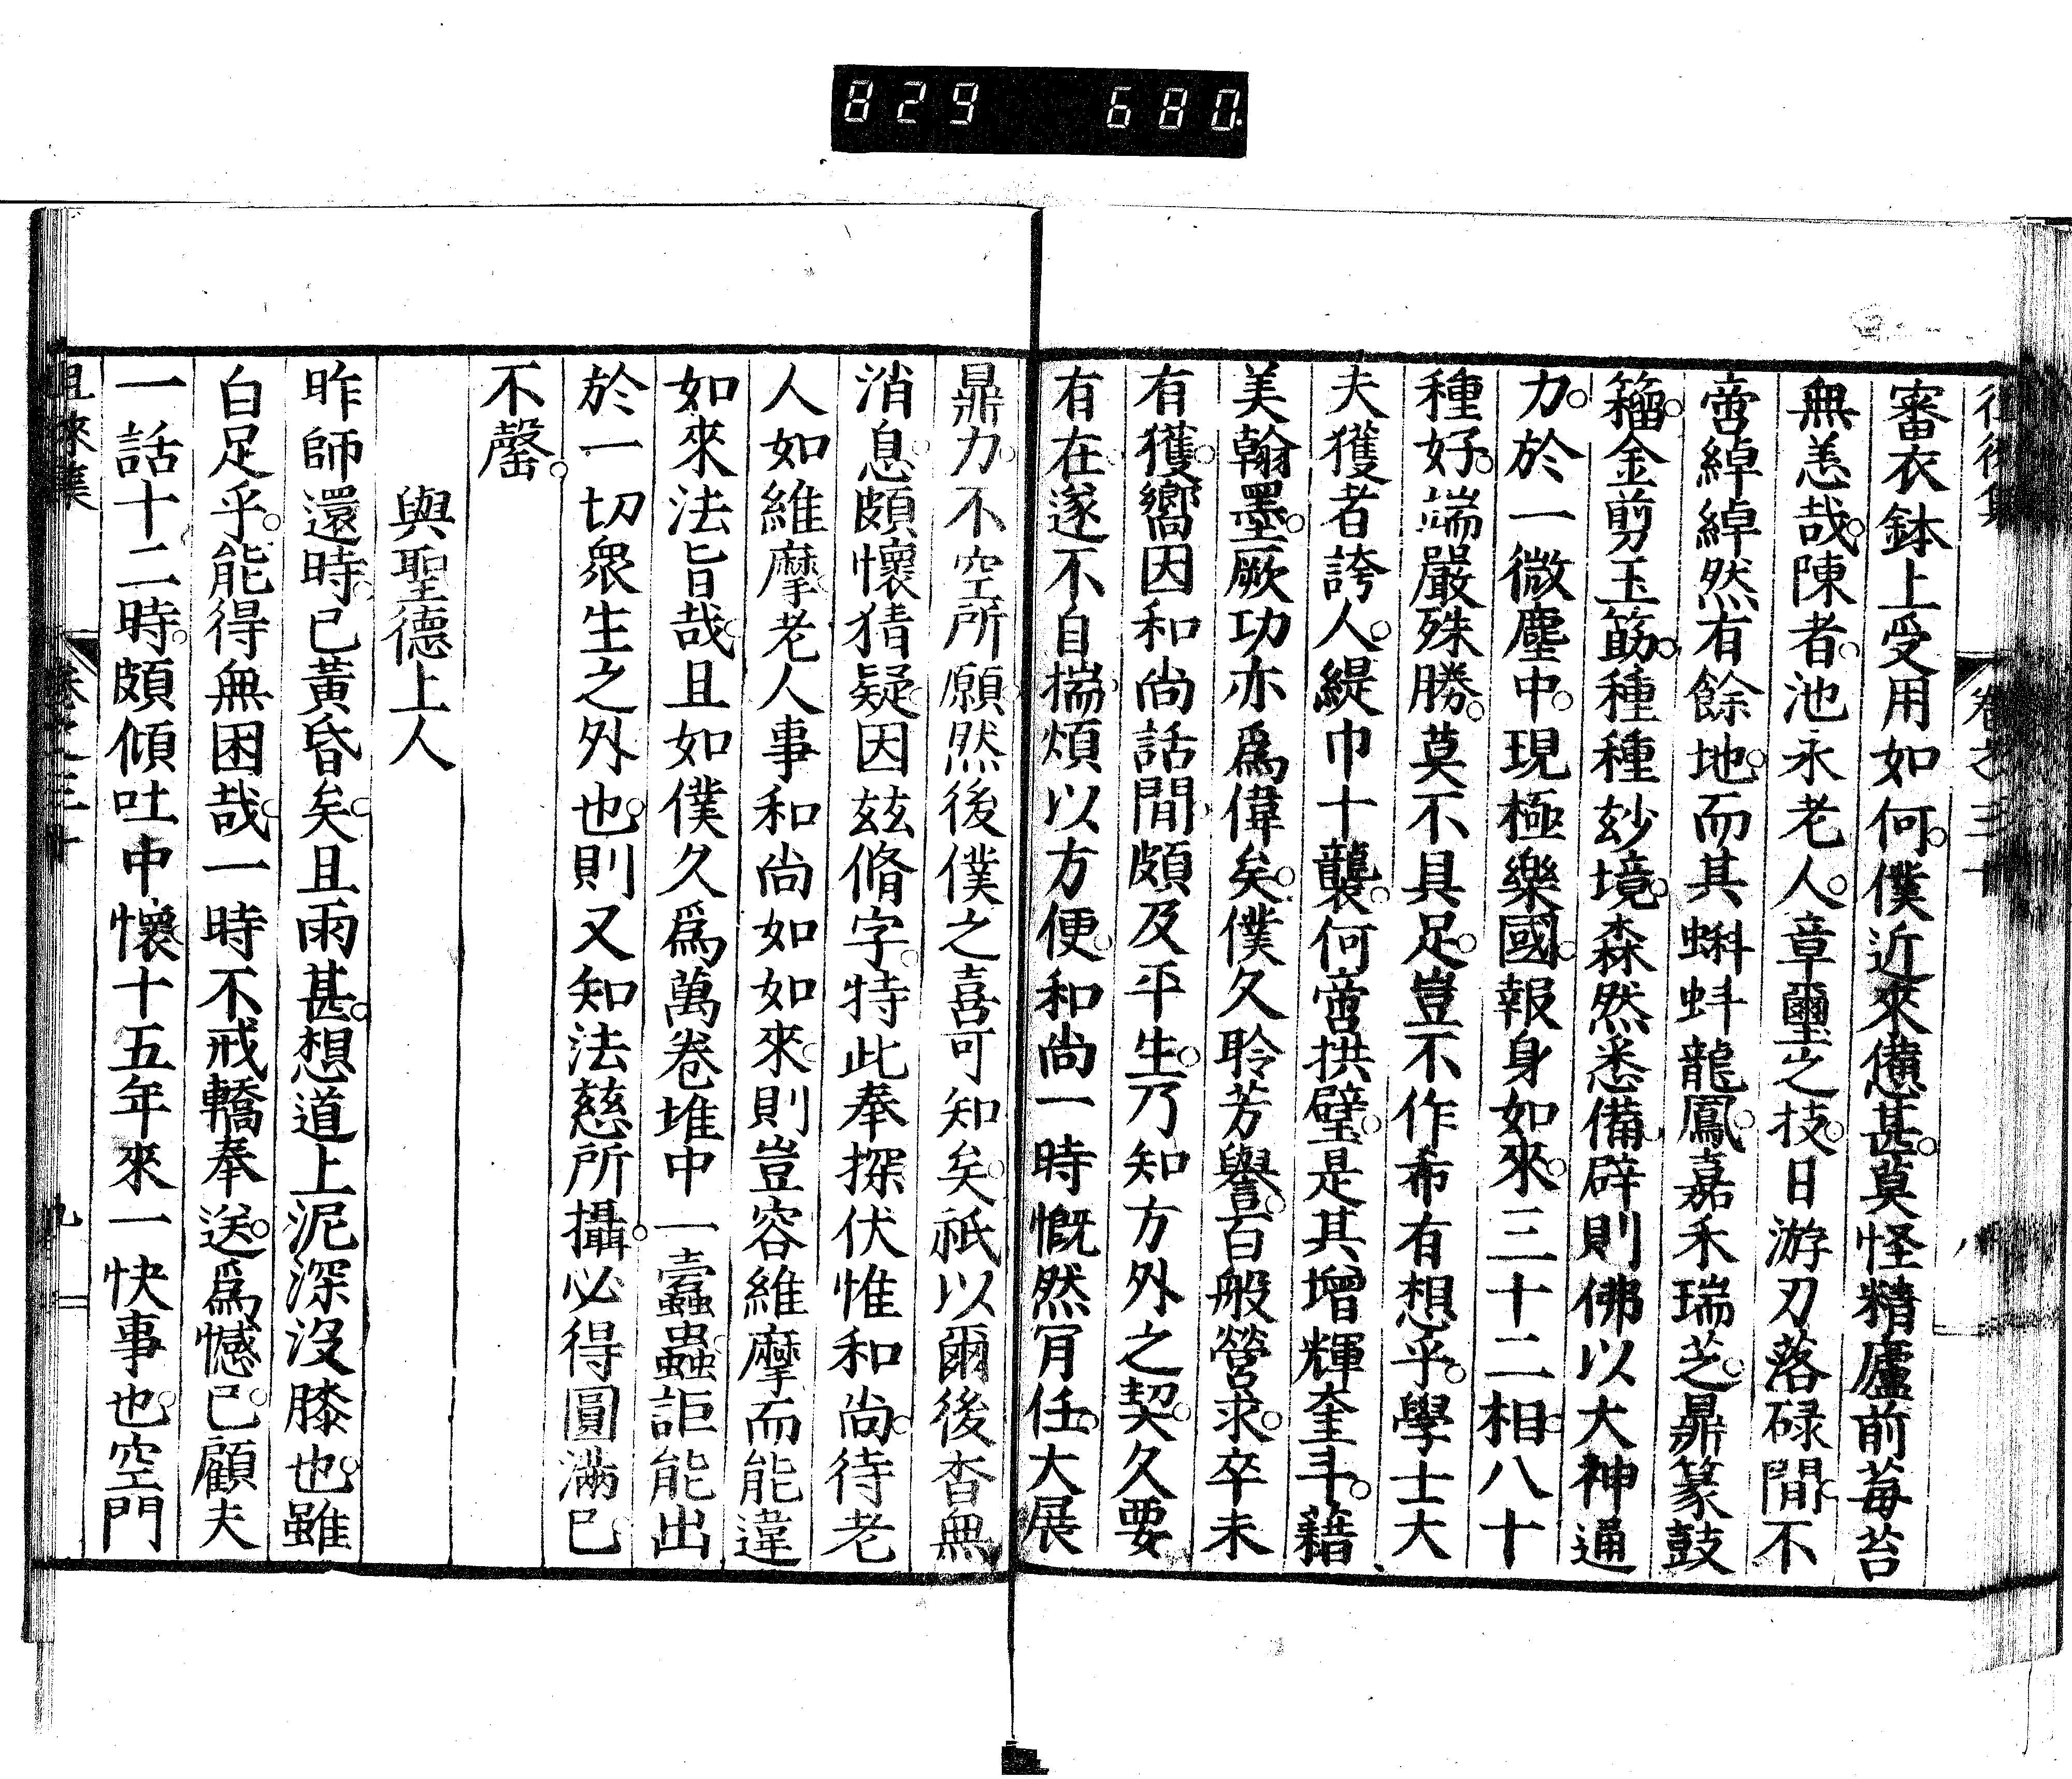 829 680
審衣鉢上受用如何。僕近來憊甚。莫怪精廬前莓苔
無恙哉。陳者。池永老人。章璽之技。日游刃落碌間。不
啻綽綽然有餘地。而其蝌蚪龍鳳。嘉禾瑞芝。鼎篆鼓
籀。金剪玉筯。種種玅境。森然悉備。辟則佛以大神通
力。於一微塵中。現極樂國。報身如來。三十二相。八十
種好。端嚴殊勝。莫不具足。豈不作希有想乎。學士大
夫獲者誇人。緹巾十襲。何啻拱璧。是其增輝奎斗。藉
美翰墨。厥功亦爲偉矣。僕久聆芳譽。百般營求。卒未
有獲。嚮因和尚話間。頗及平生。乃知方外之契。久要
有在。遂不自揣。煩以方便。和尚一時慨然肎任。大展
鼎力。不空所願。然後僕之喜可知矣。祇以爾後杳無
消息。頗懷猜疑。因玆脩字。特此奉探。伏惟和尚。待老
人如維摩。老人事和尚如如來。則豈容維摩而能違
如來法旨哉。且如僕久爲萬卷堆中一蠹蟲。詎能出
於一切衆生之外也。則又知法慈所攝。必得圓滿已。
不罄。
與聖德上人
昨師還時。已黃昏矣。且雨甚。想道上泥深沒膝也。雖
白足乎。能得無困哉。一時不戒轎奉送。爲憾已。顧夫
一話十二時。頗傾吐中懷。十五年來一快事也。空門
徂來集
卷之三十
九